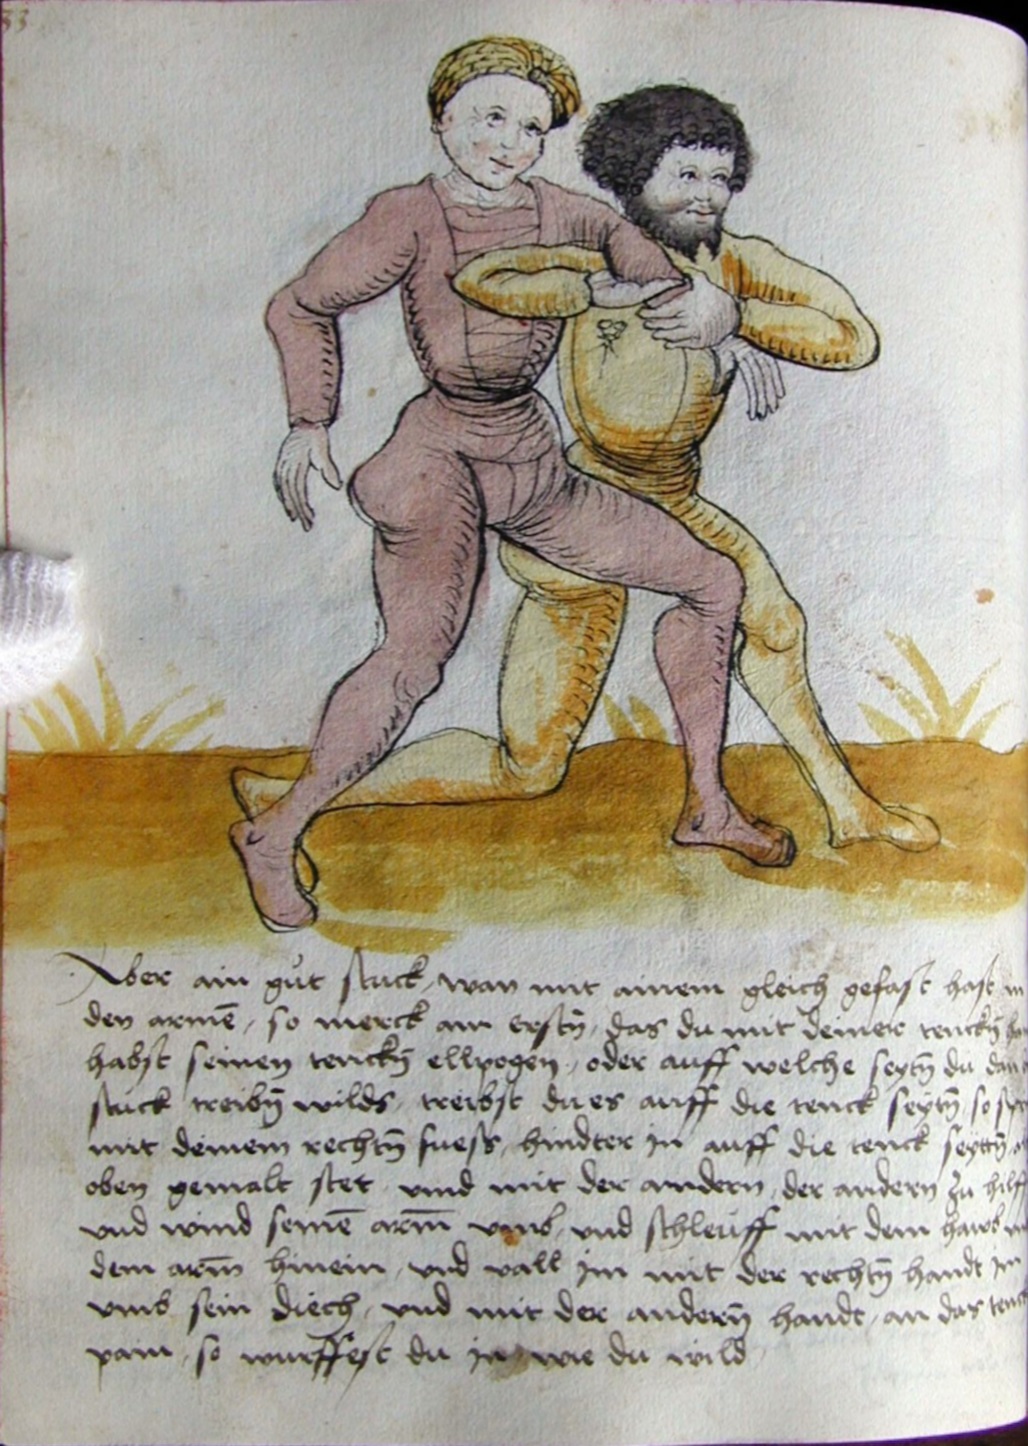 33
Aber ain gut stuck wan mit ainem gleich gefast hast in
den armē so merck am erstn̄ das du mit deiner tenckn̄
habst seinen tenckn̄ ellpogen oder auff welche seytn̄ du
stuck treibn̄ wilds treibst du es auff die tenck seytn̄ so
mit deinem rechtn̄ fuess hindter in auff die tenck seyttn̄
oben gemalt stet vnd mit der andern der andern zu hilff
vnd wind seinē arm̄ vmb vnd schleüff mit dem hawb
dem arm̄ hinein vnd vall im mit der rechtn̄ handt im
vmb sein diech vnd mit der andern̄ handt an das tenck
pain so wurffest du in wie du wild